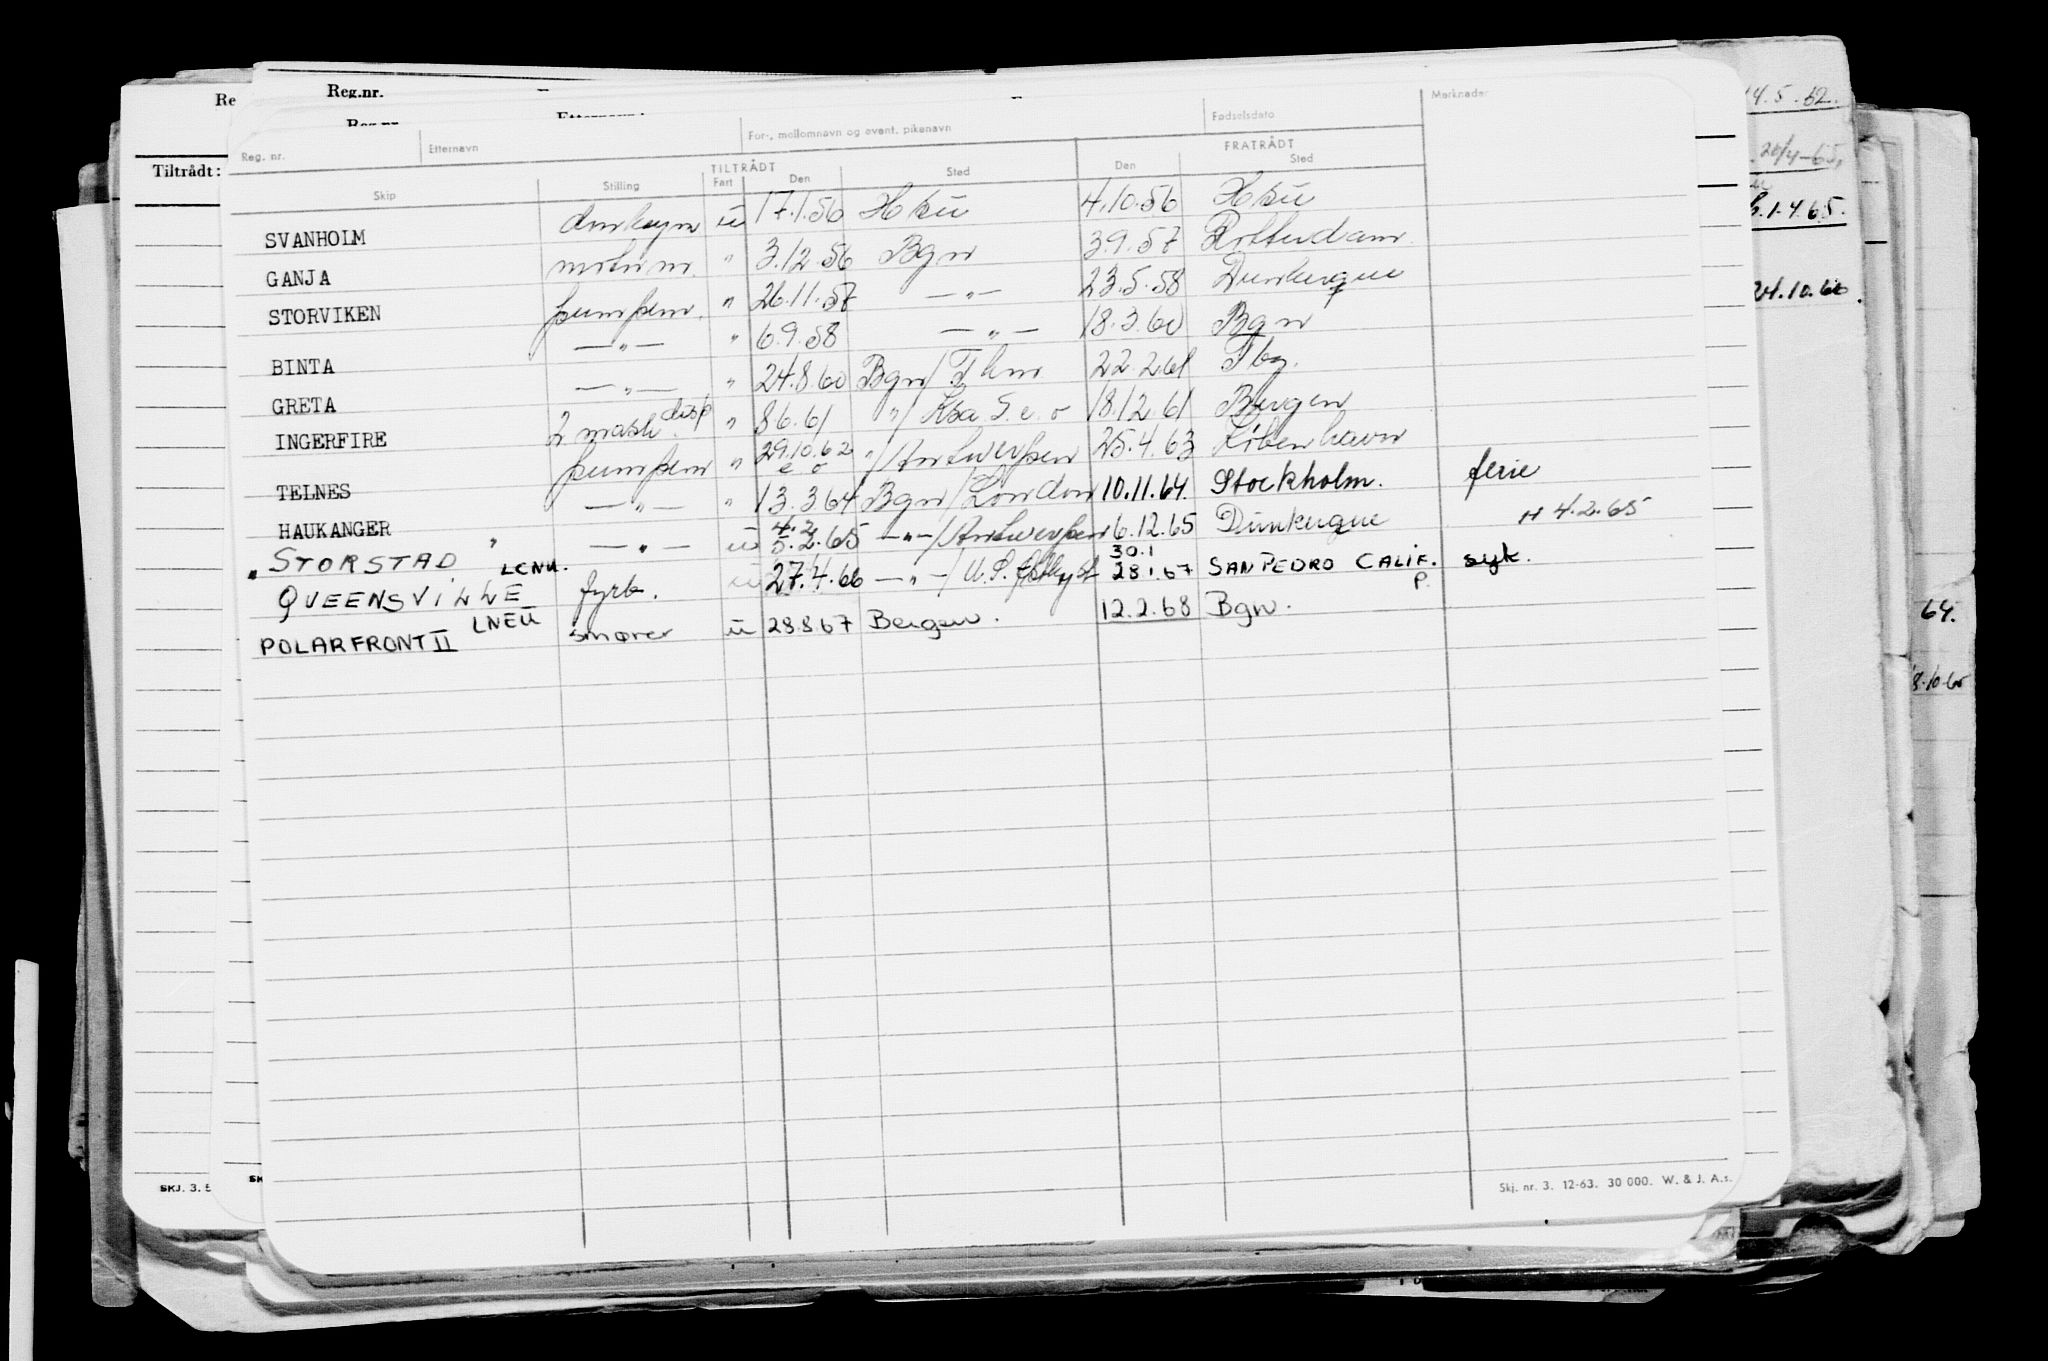 Re
Reg.nr.
Tiltrådt:
Reg. nr. Etternavn For-, mellomnavn og event. pikenavn Fødselsdato Merknader
TILTRÅDT FRATRÅDT
Skip Stilling Fart Den Sted Den Sted
SVANHOLM u 17.1.56 4.10.56
GANJA " 3.12.56 Bgn 3.9.57 Rotterdam
STORVIKEN pumpem. " 26.11.57 —"— 23.5.58 Dunkerque
BINTA —"— " 6.9.58 —"— 18.3.60 Bgn
GRETA —"— " 24.8.60 Bgn/ 22.2.61 Tbg.
INGERFIRE 2 mask. disp " 8.6.61 "/ 18.12.61 Bergen
TELNES pumpem " 29.10.62 e o "/Antwerpen 25.4.63 København
HAUKANGER —"— " 13.3.64 Bgn/London 10.11.64. Stockholm. ferie
" STORSTAD " —"— u 4.2 5.2.65 —"—/Antwerpen 6.12.65 Dunkerque H 4.2.65
QUEENSVILLE LCNU. fyrb. u 27.4.66 —"—/U.S. 30.1 28.1.67 SAN PEDRO CALIF. P. syk.
POLARFRONT II LNEU smører u 28.8.67 Bergen. 12.2.68 Bgn.
Skj. nr. 3. 12-63. 30 000. W. & J. A.s.
SKJ. 3.
SK
14.5.62.
20/4-65,
1.4.65.
24.10.66.
64.
8.10.65